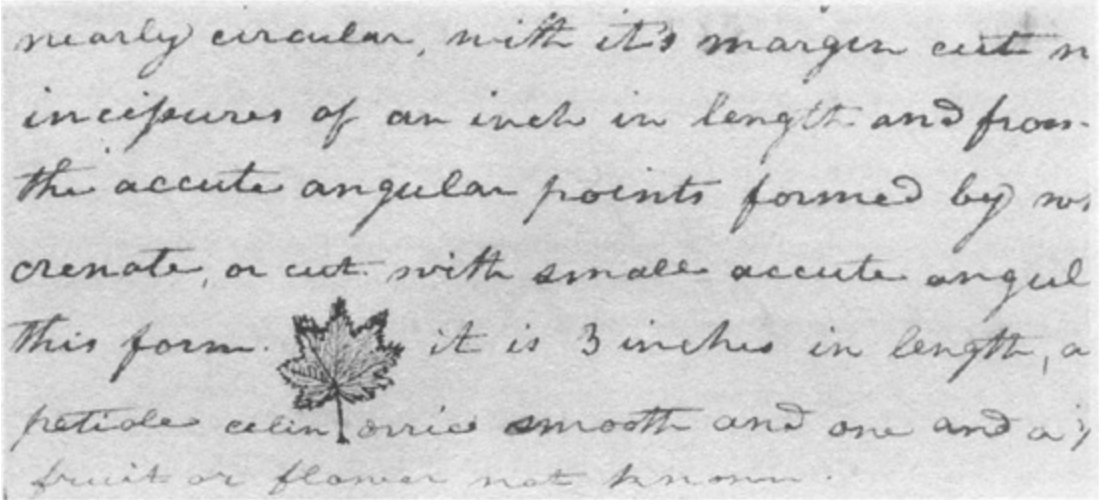 nearly circular, with it's margin cut
incisures of an inch in length and from
the accute angular points formed by
crenate, or cut with small accute angul
this form. it is 3 inches in length, a
petiole celindrric smooth and one and a
fruit or flower not known.